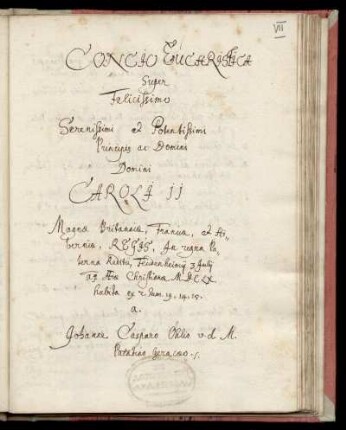 VII
CONCIO EUCARISTICA
Super
Felicissimo
Serenissimi et Potentissimi
Principis ac Domini
Domini
CAROLI II
Magnæ Britaniæ, Franciæ, et Hi-
berniæ, REGIS, In regna Pa-
terna Reditu,
habita ex 2 Sam. 19. 14. 15.
a.
Johanne Casparo v. d. M.